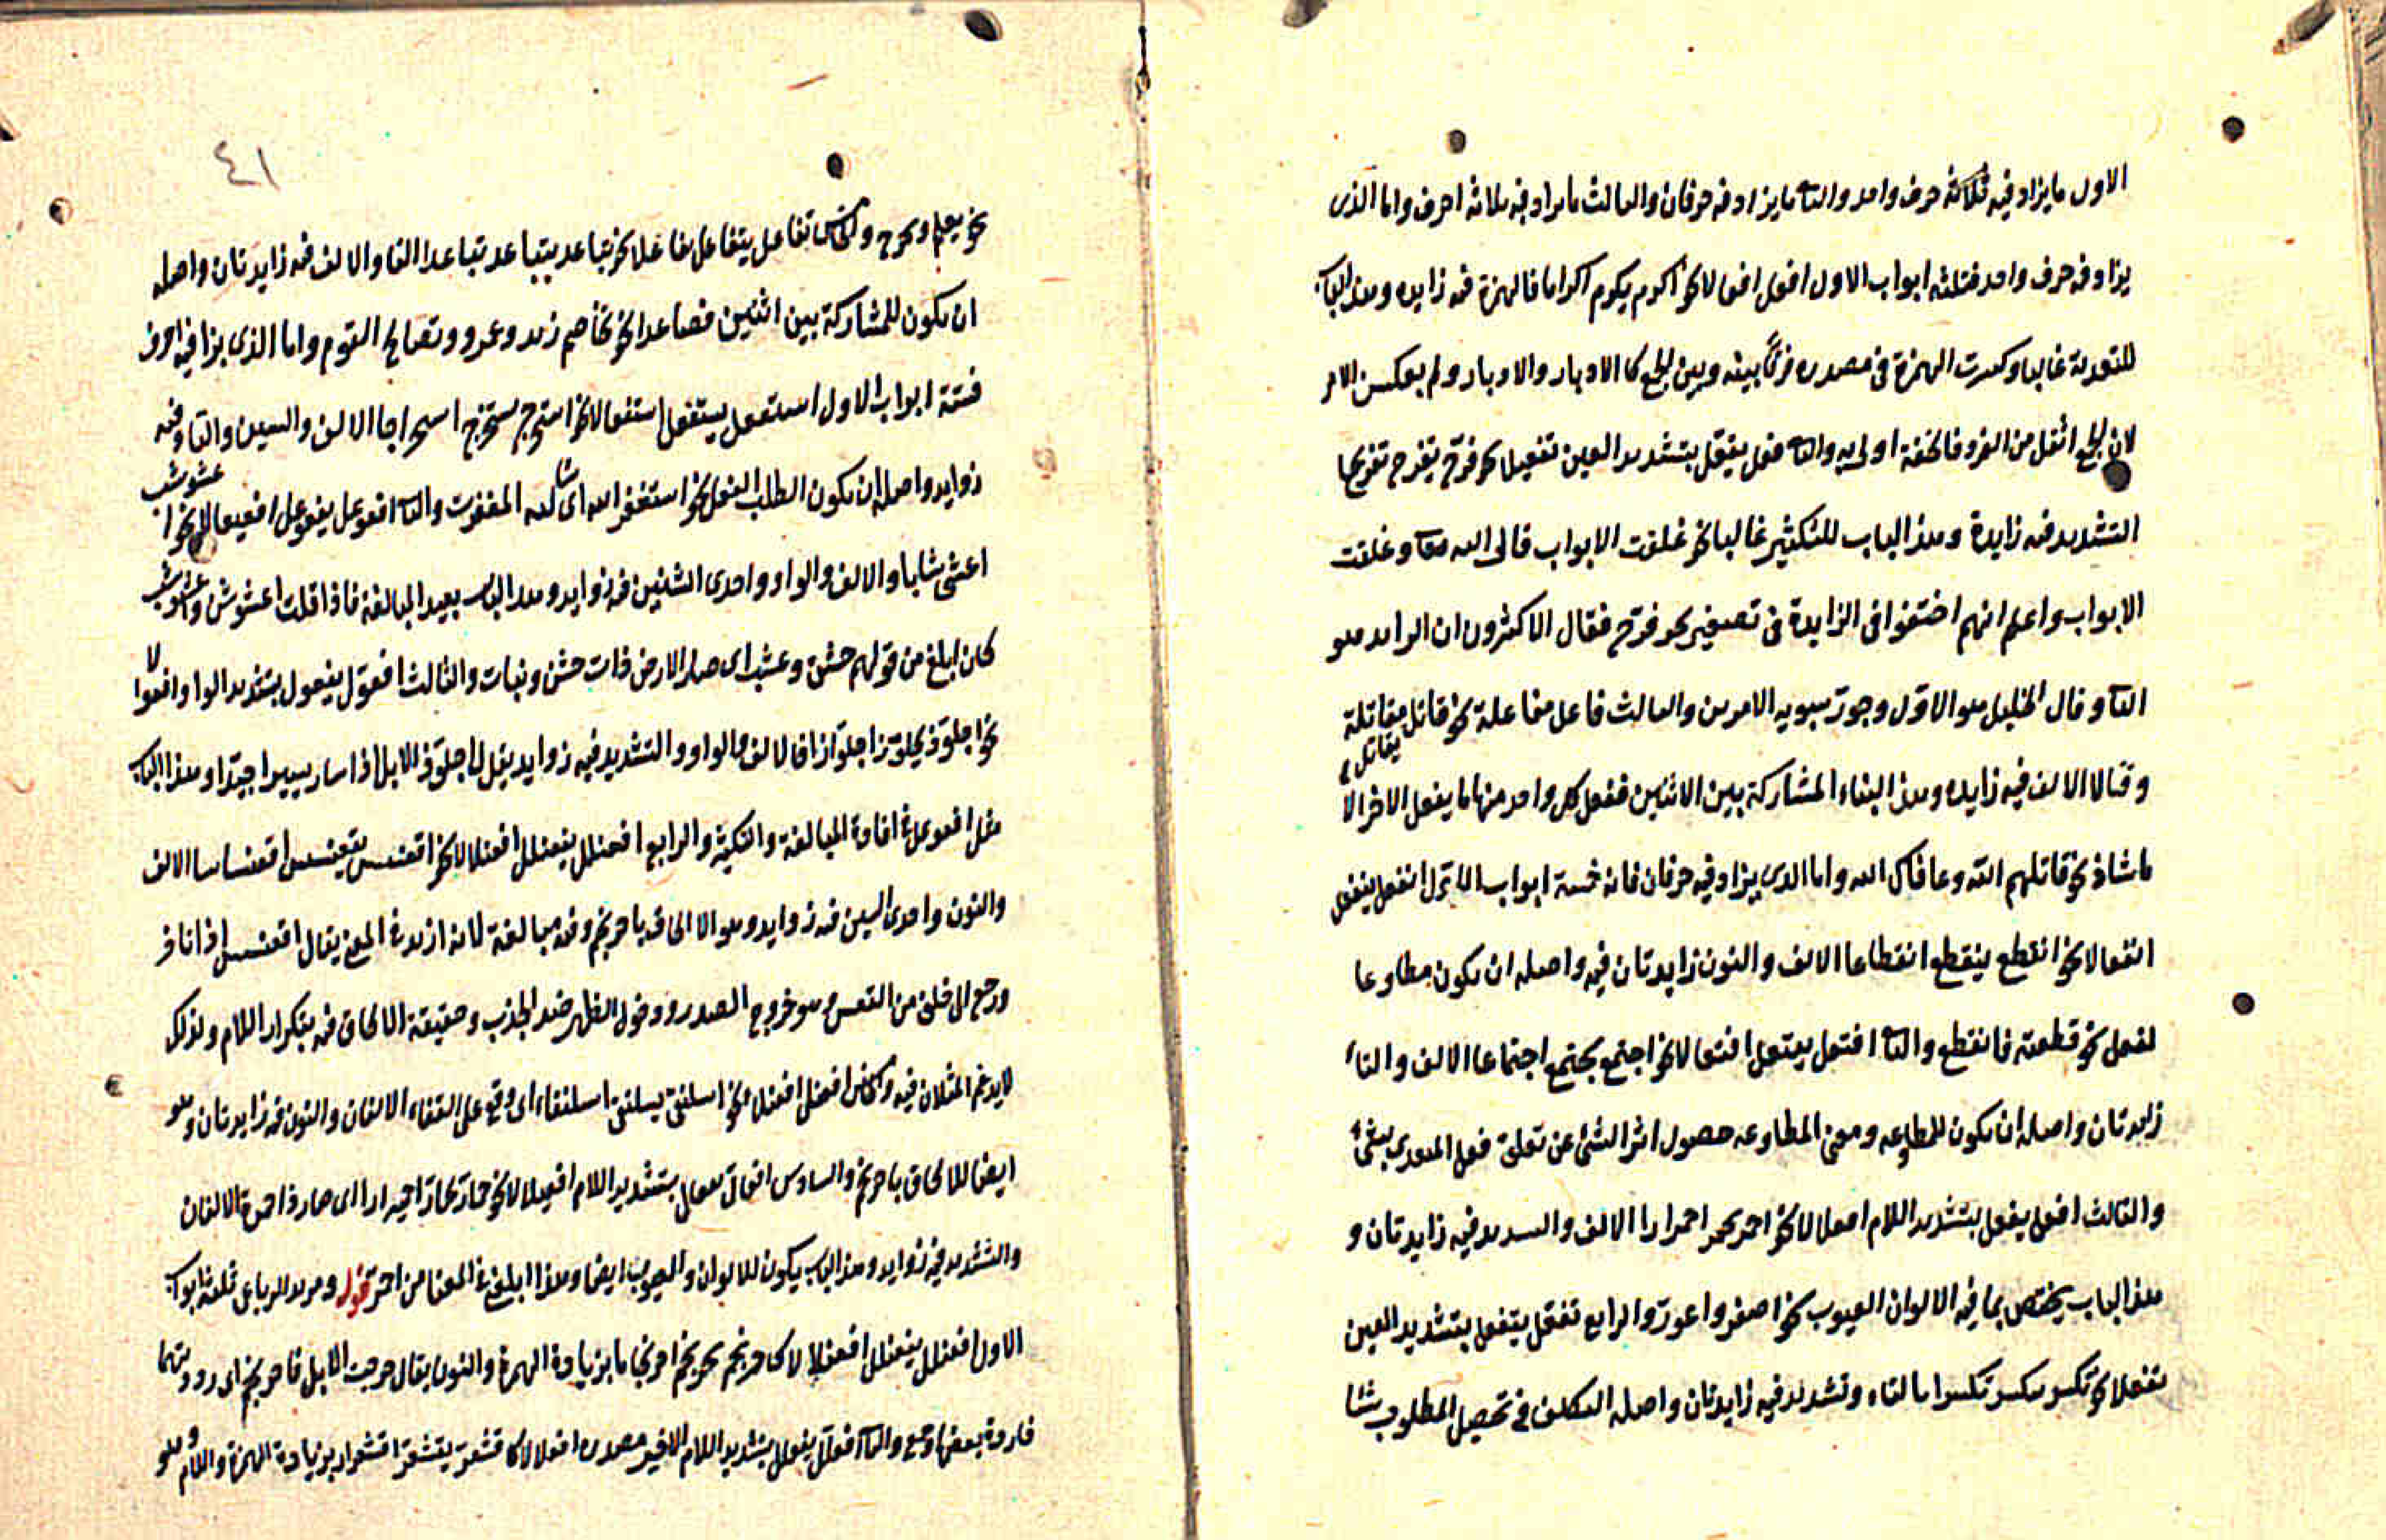 الاول ما يزاد فيه ثلاثة حرف واحد والثا ما يزاد فه حرفان والثالث ما يراد فه ثلاثه احرف واما الذى
يزاد فه حرف واحد فثلثه ابواب الاول افعل افعالا نحو اكرم يكرم اكراما فالهمزة فه زايده وهذ الباب
للتعدية غالبا وكسرت الهمزة فى مصدره فرقا بينه وبين الجمع كالادبار والادبار ولم يعكس الامر
لان الجمع اثقل من المفرد فالخفة اولى به والثا فعل يفعل بتشديد العين تفعيلا نحو فرح يفرح تفريحا
التشديد فه زايدة وهذ الباب للتكثير غالبا نحو غلقت الابواب قال الله تعا وغلقت
الابواب واعلم انهم اختلفوا فى الزايدة فى تضعيف نحو فرح فقال الاكثرون ان الزايد هو
الثا وقال الخليل هو الاول وجوز سيبويه الامرين والثالث فاعل مفاعلة نحو قاتل مقاتلة
يقاتل
وقتالا الالف فيه زايده وهذ البناء المشاركة بين الاثنين ففعل كل واحد منهما ما يفعل الاخر الا
ما شاذ نحو قاتلهم الله وعافاك الله واما الذى يزاد فيه حرفان فانه خمسة ابواب الاول انفعل ينفعل
انفعالا نحو انقطع ينقطع انقطاعا الالف والنون زايدتان فيه واصله ان يكون مطاوعا
لفعل نحو قطعته فانقطع والثا افتعل يفتعل افتعالا نحو اجتمع يجتمع اجتماعا الالف والتاء
زايدتان واصله ان يكون للمطاوعه ومعنى المطاوعه حصول اثر الشئ عن تعلق فعل المتعدى بشئ
والثالث افعل يفعل بتشديد اللام افعلالا نحو احمر يحمر احمرارا الالف والتشديد فيه زايدتان و
هذ الباب يختص بما فيه الالوان العيوب نحو اصفر واعور والرابع تفعل يتفعل بتشديد العين
تفعلا نحو تكسر يتكسر تكسرا بالتاء وتشديد فيه زايدتان واصله التكلف فى تحصيل المطلوب شيئا
٤١
نحو يعلم ويخرج والخامس تفاعل يتفاعل تفاعلا نحو تباعد يتباعد تباعدا التا والالف فه زايدتان واصله
ان يكون للمشاركة بين اثنين فصاعدا نحو تخاصم زيد وعمرو وتصالح القوم واما الذى يزا فيه احرف
فستة ابواب الاول استفعل يستفعل استفعالا نحو استخرج يستخرج استخراجا الالف والسين والتا فه
زوايد واصله ان يكون الطلب الفعل نحو استغفر الله اى المغفرت والثا افعوعل يفعوعل افعيعالا نحو ا
عشوشب
اعشيشابا والالف والواو واحدى الشنين فه زوايد وهذ الباب يفيد المبالغة فاذا قلت اعشوش
كان ابلغ من قولهم حشن وعشب اى صار الارض ذات حشن ونبات والثالث افعول يفعول بتشديد الوا وافعوا
لا
نحو اجلوذ يجلوذ اجلواذا فالالف والواو والتشديد فيه زوايد يقال اجلوذ الابل اذا سار سيرا جيدا وهذ الباب
مثل افعوعل فى افادة المبالغة والتكثير والرابع افعنلل يفعنلل افعنلالا نحو اقعنسس يقعنسس اقعنساسا الالف
والنون واحدى السين فه زوايد وهو الالحاقه باحرنجم وفه مبالغة لانه ازيد فى المعنى يقال اقعنسس اذا تاخر
ورجع الى خلف من القعس وهو خروج الصدر ودخول الظهر ضد الحدب وحقيقة الالحاق فه بتكرار اللام ولذلك
لا يدغم المثلان فيه والخامس افعنلى افعنلاء نحو اسلنقى يسلنقى اسلنقاء اى وقع على القفاء الالفان والنون فه زايدتان وهو
ايضا للالحاق باحرنجم والسادس افعال يفعال بتشديد اللام افعيلالا نحو حمار يحمار احميرارا اى صار ذا حمرة الالفان
والتشديد فيه زوايد وهذ الباب يكون للالوان والعيوب ايضا وهذا ابلغ فى المعنا من احمر قول ومزيد الرباعى ثلثة ابواب
الاول افعنلل يفعنلل افعنلالا كاحرنجم يحرنجم احرنجاما بزيادة الهمزة والنون يقال حرجمت الابل فاحرنجم اى رددتها
فارتد بعضها والثا افعلل يفعلل بتشديد اللام الاخير مصدره افعلالا كاقشعر يقشعر اقشعرار بزيادة الهمزة واللام وهو